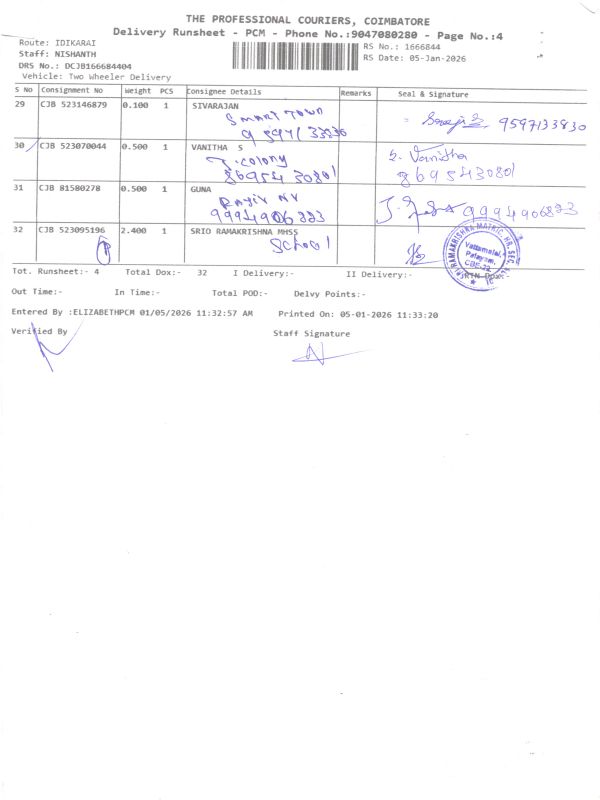 THE PROFESSIONAL COURIERS, COIMBATORE
Delivery Runsheet - PCM - Phone No.:9047080280 - Page No.:4
Route: IDIKARAI
RS No.: 1666844
Staff: NISHANTH
RS Date: 05-Jan-2026
DRS No.: DCJB166684404
Vehicle: Two Wheeler Delivery
S No Consignment No Weight PCS Consignee Details Remarks Seal & Signature
29 CJB 523146879 0.100 1 SIVARAJAN
Smart Town
9597133830
30 CJB 523070044 0.500 1 VANITHA S
S. Vanitha
T. colony
8695430801 8695430801
31 CJB 81580278 0.500 1 GUNA
Rajiv NV
9994906823 9994906823
32 CJB 523095196 2.400 1 SRIO RAMAKRISHNA MHSS
School
SRI RAMAKRISHNA MATRIC. HR. SEC.
Vattamalai
Palayam,
CBE-22
Tot. Runsheet:- 4 Total Dox:- 32 I Delivery:- II Delivery:-
Out Time:- In Time:- Total POD:- Delvy Points:-
Entered By :ELIZABETHPCM 01/05/2026 11:32:57 AM Printed On: 05-01-2026 11:33:20
Verified By Staff Signature